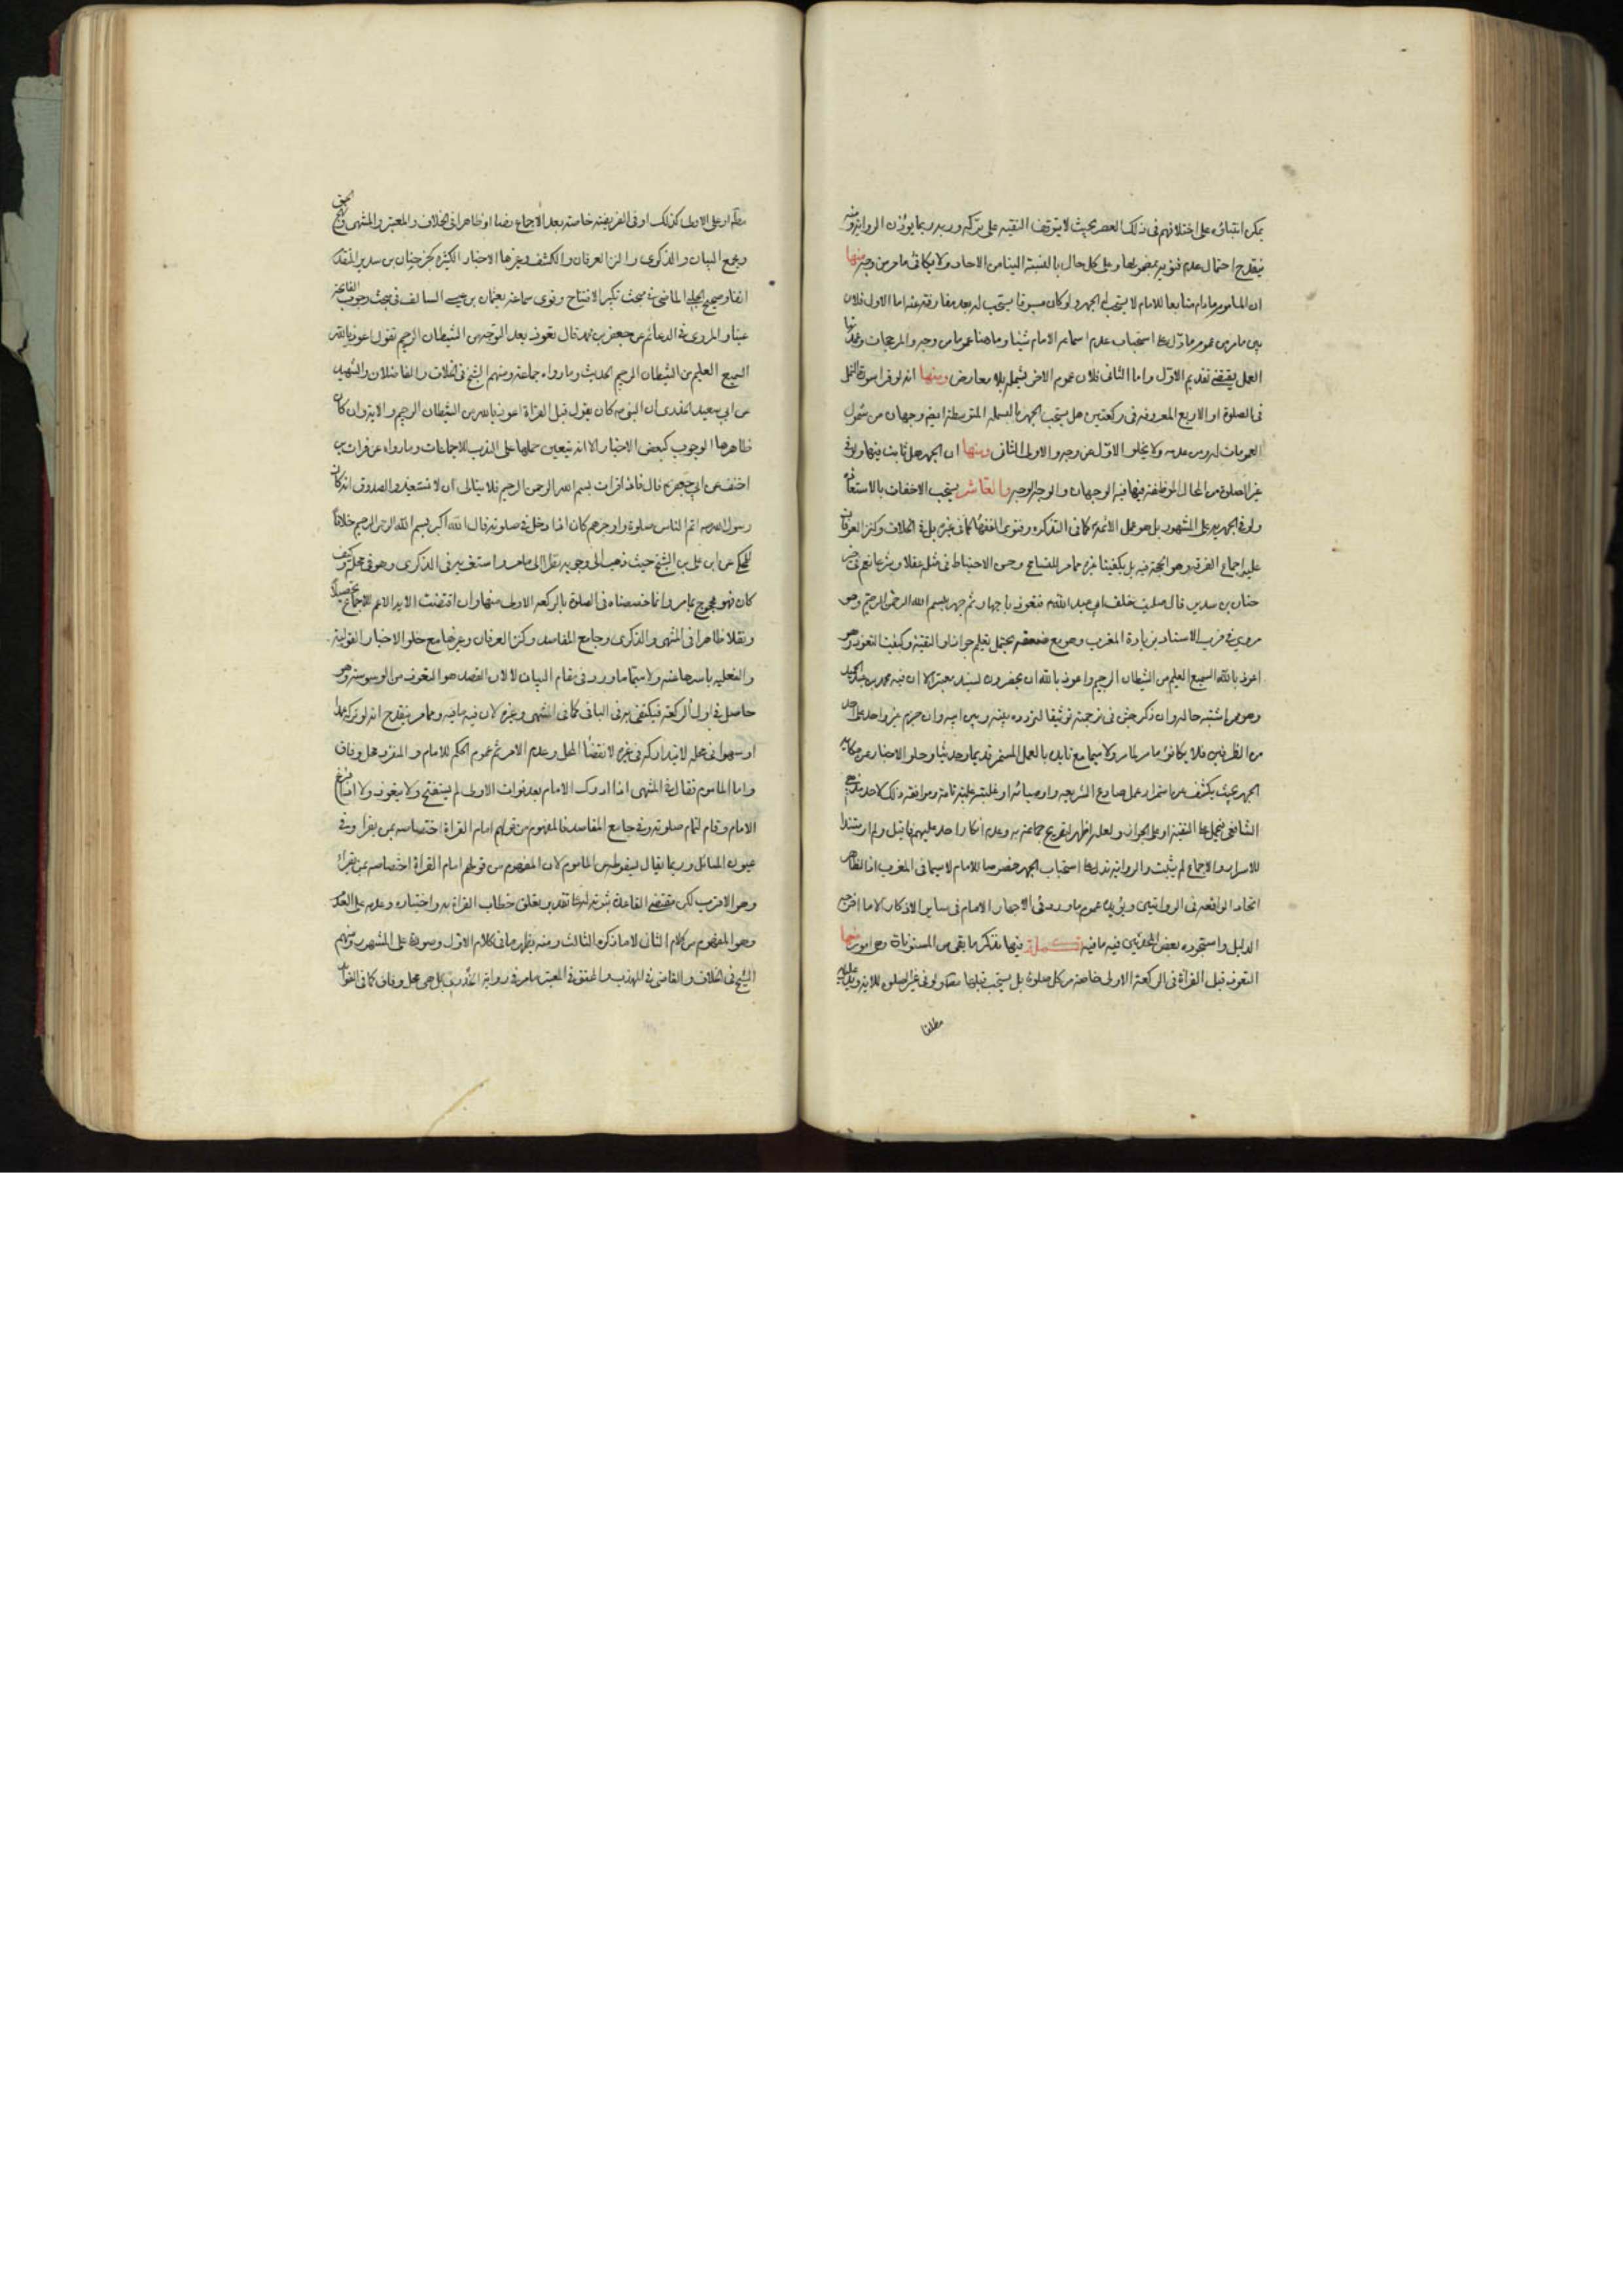 يمكن ابتناؤه على اختلافهم فى ذلك العصر بحيث لا يتوقف التقيه على تركه وربما يؤذن الرواية
فيقدح احتمال عدم على كل حال بالنسبة الينا من الاحاد ولا يكافى مامر من وجه منها
ان الماموم مادام متابعا للامام لا يستحب له الجهر ولو كان مسبوقا يستحب له بعد مفارقته عنه اما الاول فلان
بين مامر من عموم مادل على استحباب عدم اسماعه الامام شيئا وما هنا عموما من وجه والمرجحات
العمل يقتضى تقديم الاول واما الثانى فلان عموم الاخر يشمله بلا معارض ومنها انه لو قرا سورة النمل
فى الصلوة او الاربع المعروفه فى ركعتين هل يستحب الجهر بالبسمله المتوسطة ايضا وجهان من شمول
العمومات له ومن عدمه ولا يخلو الاول من وجه والاولى الثانى ومنها ان الجهر هل ثابت فيها ولو فى
غير الصلوة من المحال الموظفة فيها فيه الوجهان والوجه الوجه والعاشر يستحب الاخفات بالاستعاذه
ولو فى الجهريه على المشهور بل هو عمل الائمة كما فى التذكره وفتوى الفقهاء كما فى غيره بل فى الخلاف وكنز العرفان
عليه اجماع الفرقه وهو الحجة فيه بل يكفينا غيره مما مر للتسامح وحسن الاحتياط فى مثله عقلا وشرعا نعم فى خبر
حنان بن سدير قال صليت خلف ابى عبد الله ع فتعوذ باجهار ثم جهر ببسم الله الرحمن الرحيم وهو
مروى فى قرب الاسناد بزيادة المغرب وهو مع ضعفه يحتمل تعليم جوازه او التقيه وكيفيت التعوذ وهو
اعوذ بالله السميع العليم من الشيطان الرجيم واعوذ بالله ان يحضرون لسند معتبر الا ان فيه محمد بن عبد الحميد
وهو من اشتبه حاله وان ذكر جش فى ترجمته توثيقا لتردده بينه وبين ابيه وان جزم غير واحد على احد
من الطرفين فلا يكافؤ مامر لمامر ولا سيما مع تايده بالعمل المستمر قديما وحديثا وخلو الاخبار عن حكايه
الجهر بحيث يكشف عن استمرار عمل صادع الشريعه واوصيائه او غلبته غلبة تامة وموافقه ذلك لاحد
الشافعى فيحمل على التقية او على الجواز ولعله اظهر لتصريح جماعة به وعدم انكار احد عليهم فما قيل ولم ار مستندا
للاسرار والاجماع لم يثبت والرواية تدل على استحباب الجهر خصوصا للامام لا سيما فى المغرب اذ الظاهر
اتحاد الواقعه فى الروايتين ويؤيده عموم ماورد فى الاجهار الامام فى ساير الاذكار الا ما اخرجه
الدليل واستجوده بعض المحدثين فيه مافيه تكملة فيها نذكر ما بقى من المسنونات وهى امور منها
التعوذ قبل القراة فى الركعة الاولى خاصة من كل صلوة بل يستحب قبلها مطلقا ولو فى غير الصلوة للاية وعليه
مطلقا
او على الاولى كذلك او فى الفريضة خاصة بعد الاجماع نصا او ظاهرا فى الخلاف والمعتبر والمنتهى
ومجمع البيان والذكرى وكنز العرفان والكشف وغيرها الاخبار الكثيره كخبر حنان بن سدير المتقدم
انفا وصحيح الحلبى الماضى فى مبحث تكبير الافتتاح وقوى سماعة بعثمان بن عيسى السالف فى مبحث وجوب الفاتحة
عينا والمروى فى الدعائم عن جعفر بن محمد قال تعوذ بعد التوجه من الشيطان الرجيم تقول اعوذ بالله
السميع العليم من الشيطان الرجيم الحديث وما رواه جماعة ومنهم الشيخ فى الخلاف والفاضلان والشهيد
عن ابى سعيد الخدرى ان النبى ص كان يقول قبل القراة اعوذ بالله من الشيطان الرجيم والاية وان كان
ظاهرها الوجوب كبعض الاخبار الا انه يتعين حملها على الندب للاجماعات وما رواه عن فرات بن
احنف عن ابى جعفر ع قال فاذا قرات بسم الله الرحمن الرحيم فلا تبالى ان لا تستعيذ والصدوق انه كان
رسول الله ص اتم الناس صلوة واوجزهم كان اذا دخل فى صلوته قال الله اكبر بسم الله الرحمن الرحيم خلافا
للمحكى عن ابى على بن الشيخ حيث ذهب الى وجوبه نظرا الى مامر واستغربه فى الذكرى وهو فى محله وكيف
كان فهو محجوج بمامر وانما خصصناه فى الصلوة بالركعة الاولى منها وان اقتضت الاية الاعم للاجماع تحصيلا
ونقلا ظاهرا فى المنتهى والذكرى وجامع المقاصد وكنز العرفان وغيرها مع خلو الاخبار القولية
والفعليه باسرها عنه ولا سيما ماورد فى مقام البيان لا لان القصد هو التعوذ من الوسوسة وهو
حاصل فى اول الركعة فيكتفى به فى الباقى كما فى المنتهى وغيره لان فيه مافيه ومما مر ينقدح انه لو تركه عمدا
او سهوا فى محله لا يتداركه فى غيره لانقضاء المحل وعدم الامر ثم عموم الحكم للامام والمنفرد محل وفاق
واما الماموم فقال فى المنتهى اذا ادرك الامام بعد فوات الاولى لم يستفتح ولا يتعوذ ولا اذا فرغ
الامام وقام لتمام صلوته وفى جامع المقاصد فالمفهوم من قولهم امام القراة اختصاصه بمن يقرا وفى
عيون المسائل وربما يقال بسقوطه من الماموم لان المفهوم من قولهم امام القراة اختصاصه بمن يقرا
وهو الاقرب لكن مقتضى القاعدة ثبوته له على تقدير تعلق خطاب القراة به واختياره وعدمه على العدم
وهو المفهوم من كلام الثانى لا ما ذكره الثالث ومنه يظهر مافى كلام الاول وصورته على المشهور ومنهم
الشيخ فى الخلاف والقاضى فى المهذب والمحقق فى المعتبر مامر فى رواية الخدرى بل هى محل وفاق كما فى